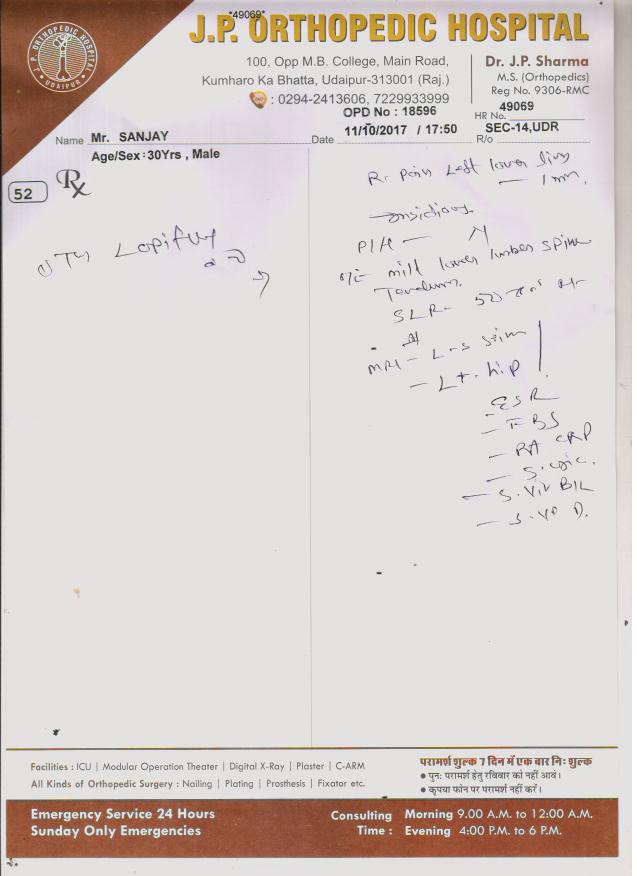 *49069*
J.P. ORTHOPEDIC HOSPITAL
J. P. ORTHOPEDIC HOSPITAL
UDAIPUR
100, Opp M.B. College, Main Road,
Kumharo Ka Bhatta, Udaipur-313001 (Raj.)
: 0294-2413606, 7229933999
Dr. J.P. Sharma
M.S. (Orthopedics)
Reg No. 9306-RMC
OPD No : 18596
HR No. 49069
Name Mr. SANJAY
Date 11/10/2017 / 17:50
R/o SEC-14,UDR
Age/Sex : 30Yrs , Male
52
Rx
Pain Left lower
insidious
P/H —
mild lower lumber spine
SLR-
MRI - L-S spine
- Lt. hip
ESR
- FBS
- RA CRP
- S. uric.
- S. Vit B12
- S. Vit D.
Facilities : ICU | Modular Operation Theater | Digital X-Ray | Plaster | C-ARM
All Kinds of Orthopedic Surgery : Nailing | Plating | Prosthesis | Fixator etc.
परामर्श शुल्क 7 दिन में एक बार निः शुल्क
● पुनः परामर्श हेतु रविवार को नहीं आवें।
● कृपया फोन पर परामर्श नहीं करें।
Emergency Service 24 Hours
Sunday Only Emergencies
Consulting Time : Morning 9.00 A.M. to 12:00 A.M.
Evening 4:00 P.M. to 6 P.M.